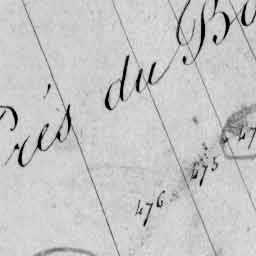 Prés du Bo
476
475
47